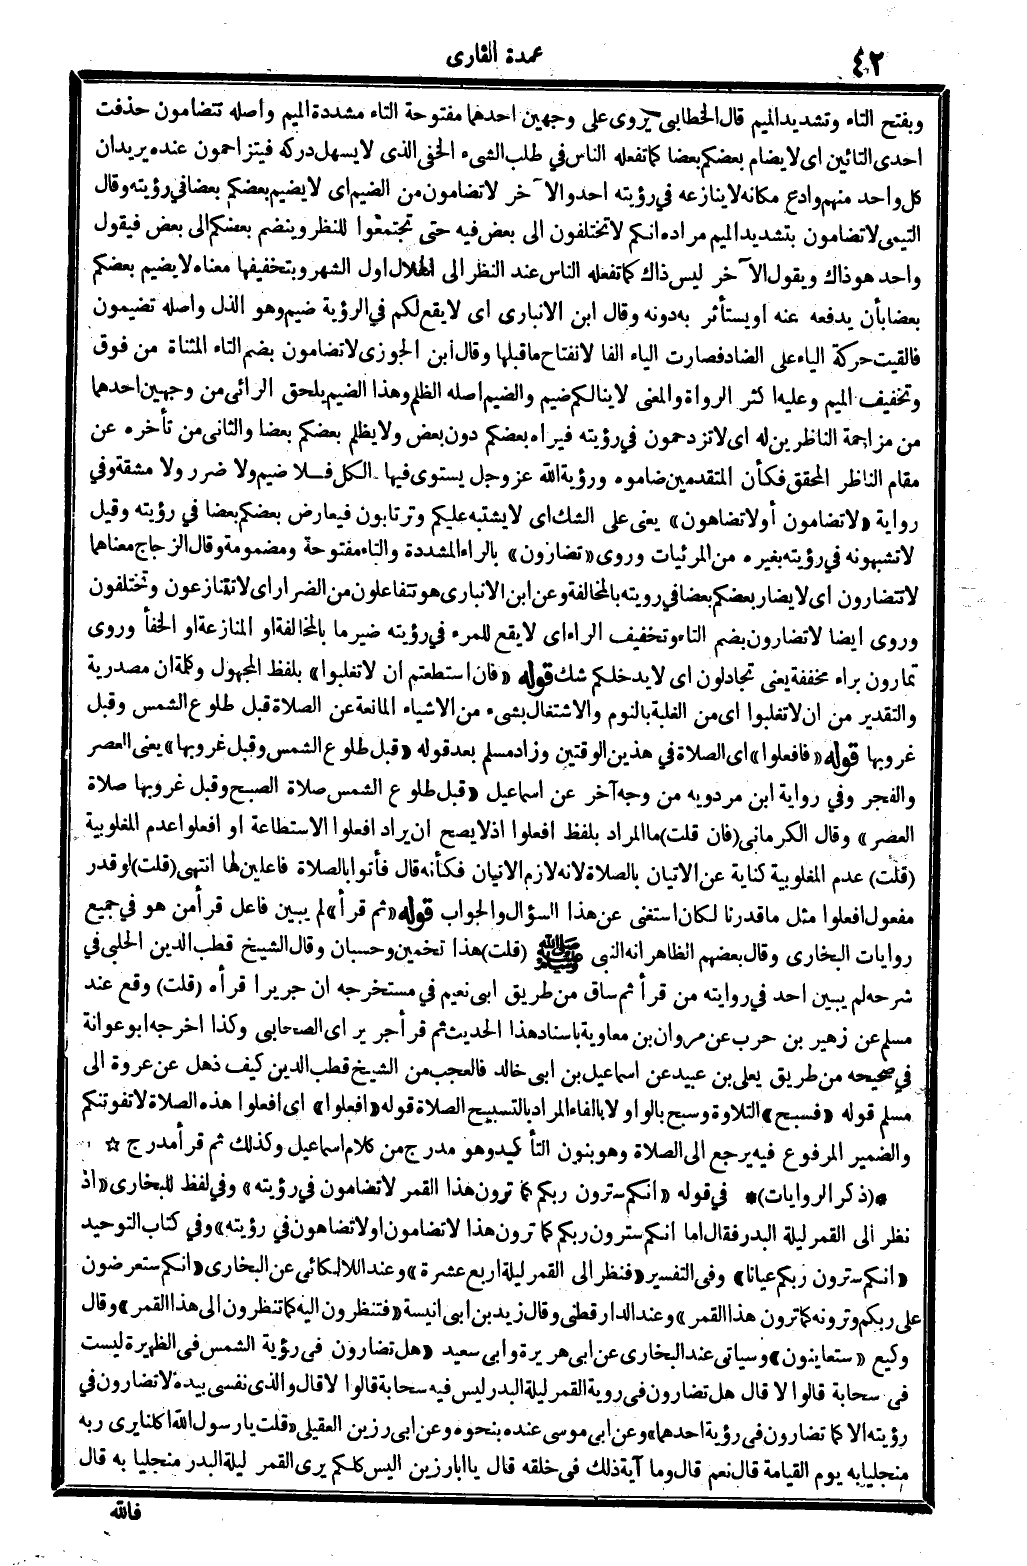 ٤٢
عمدة القارى
وبفتح التاء وتشديد الميم قال الخطابى يروى على وجهين احدهما مفتوحة التاء مشددة الميم وأصله تتضامون حذفت
احدى التائين اى لا يضام بعضكم بعضا كما تفعله الناس في طلب الشىء الخفى الذى لا يسهل دركه فيتزاحمون عنده يريدان
كل واحد منهم وادع مكانه لا ينازعه في رؤيته احد والآخر لا تضامون من الضيم اى لا يضيم بعضكم بعضا في رؤيته وقال
التيمى لا تضامون بتشديد الميم مراده انكم لا تختلفون الى بعض فيه حتى تجتمعوا للنظر وينضم بعضكم الى بعض فيقول
واحد هو ذاك ويقول الآخر ليس ذاك كما تفعله الناس عند النظر الى الهلال اول الشهر وبتخفيفها معناه لا يضيم بعضكم
بعضا بأن يدفعه عنه او يستأثر به دونه وقال ابن الانبارى اى لا يقع لكم في الرؤية ضيم وهو الذل واصله تضيمون
فالقيت حركة الياء على الضاد فصارت الياء الفا لانفتاح ما قبلها وقال ابن الجوزى لا تضامون بضم التاء المثناة من فوق
وتخفيف الميم وعليه اكثر الرواة والمعنى لا ينالكم ضيم والضيم اصله الظلم وهذا الضيم يلحق الرائى من وجهين احدهما
من مزاحمة الناظرين له اى لا تزدحمون في رؤيته فيراه بعضكم دون بعض ولا يظلم بعضكم بعضا والثانى من تأخره عن
مقام الناظر المحقق فكأن المتقدمين ضاموه ورؤية الله عز وجل يستوى فيها الكل فلا ضيم ولا ضرر ولا مشقة وفي
رواية «لا تضامون أولا تضاهون» يعنى على الشك اى لا يشتبه عليكم وترتابون فيعارض بعضكم بعضا في رؤيته وقيل
لا تشبهونه في رؤيته بغيره من المرئيات وروى «تضارون» بالراء المشددة والتاء مفتوحة ومضمومة وقال الزجاج معناهما
لا تتضارون اى لا يضار بعضكم بعضا في رويته بالمخالفة وعن ابن الانبارى هو تتفاعلون من الضرار اى لا تتنازعون وتختلفون
وروى ايضا لا تضارون بضم التاء وتخفيف الراء اى لا يقع للمرء في رؤيته ضير ما بالمخالفة او المنازعة او الخفأ وروى
تمارون براء مخففة يعنى تجادلون اى لا يدخلكم شك قوله «فان استطعتم ان لا تغلبوا» بلفظ المجهول وكلمة ان مصدرية
والتقدير من ان لا تغلبوا اى من الغلبة بالنوم والاشتغال بشىء من الاشياء المانعة عن الصلاة قبل طلوع الشمس وقبل
غروبها قوله «فافعلوا» اى الصلاة في هذين الوقتين وزاد مسلم بعد قوله «قبل طلوع الشمس وقبل غروبها» يعنى العصر
والفجر وفي رواية ابن مردويه من وجه آخر عن اسماعيل «قبل طلوع الشمس صلاة الصبح وقبل غروبها صلاة
العصر» وقال الكرمانى (فان قلت) ما المراد بلفظ افعلوا اذ لا يصح ان يراد افعلوا الاستطاعة او افعلوا عدم المغلوبية
(قلت) عدم المغلوبية كناية عن الاتيان بالصلاة لانه لازم الاتيان فكأنه قال فأتوا بالصلاة فاعلين لها انتهى (قلت) لو قدر
مفعول افعلوا مثل ما قدرنا لكان استغنى عن هذا السؤال والجواب قوله «ثم قرأ» لم يبين فاعل قرأ من هو في جميع
روايات البخارى وقال بعضهم الظاهر انه النبى ﷺ (قلت) هذا تخمين وحسبان وقال الشيخ قطب الدين الحلبى في
شرحه لم يبين احد في روايته من قرأ ثم ساق من طريق ابى نعيم في مستخرجه ان جريرا قرأه (قلت) وقع عند
مسلم عن زهير بن حرب عن مروان بن معاوية باسناد هذا الحديث ثم قرأ جرير اى الصحابى وكذا اخرجه ابو عوانة
في صحيحه من طريق يعلى بن عبيد عن اسماعيل بن ابى خالد فالعجب من الشيخ قطب الدين كيف ذهل عن عروة الى
مسلم قوله «فسبح» التلاوة وسبح بالواو لا بالفاء المراد بالتسبيح الصلاة قوله «افعلوا» اى افعلوا هذه الصلاة لا تفوتنكم
والضمير المرفوع فيه يرجع الى الصلاة وهو بنون التأكيد وهو مدرج من كلام اسماعيل وكذلك ثم قرأ مدرج ☆
*(ذكر الروايات)* في قوله «انكم سترون ربكم كما ترون هذا القمر لا تضامون في رؤيته» وفي لفظ للبخارى «اذ
نظر الى القمر ليلة البدر فقال اما انكم سترون ربكم كما ترون هذا لا تضامون او لا تضاهون في رؤيته» وفي كتاب التوحيد
«انكم سترون ربكم عيانا» وفى التفسير «فنظر الى القمر ليلة اربع عشرة» وعند اللالكائى عن البخارى «انكم ستعرضون
على ربكم وترونه كما ترون هذا القمر» وعند الدارقطنى وقال زيد بن ابى انيسة «فتنظرون اليه كما تنظرون الى هذا القمر» وقال
وكيع «ستعاينون» وسياتى عند البخارى عن ابى هريرة وابى سعيد «هل تضارون فى رؤية الشمس فى الظهيرة ليست
فى سحابة قالوا لا قال هل تضارون فى روية القمر ليلة البدر ليس فيه سحابة قالوا لا قال والذى نفسى بيده لا تضارون في
رؤيته الا كما تضارون فى رؤية احدهما» وعن ابى موسى عنده بنحوه وعن ابى رزين العقيلى «قلت يارسول الله اكلنا يرى ربه
منجليا به يوم القيامة قال نعم قال وما آية ذلك فى خلقه قال يا ابا رزين اليس كلكم يرى القمر ليلة البدر منجليا به قال
فالله